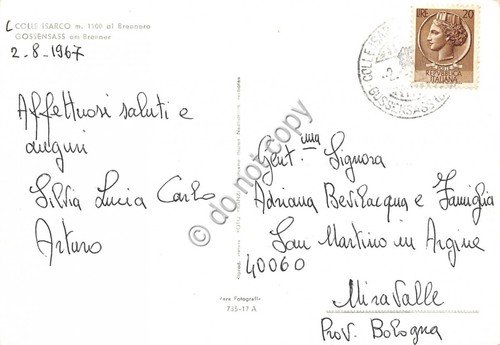 COLLE ISARCO m. 1100 al Brennero
GOSSENSASS am Brenner
2-8-1967
Affettuosi saluti e
auguri
Silvia Lucia Carlo
Arturo
Vera Fotografia
735-17 A
© do not copy
LIRE 20
REPVBBLICA
ITALIANA
COLLE ISARCO
GOSSENSASS
Gent.ima Signora
Adriana Bevilacqua e Famiglia
San Martino in Argine
40060
Miravalle
Prov. Bologna